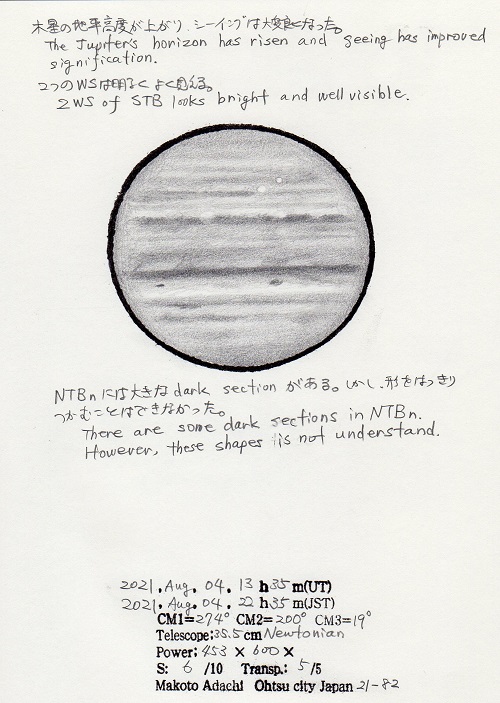 木星の地平高度が上がり、シーイングは大変良くなった。
The Jupiter's horizon has risen and seeing has improved
signification.
2つのWSは明るくよく見える。
2WS of STB looks bright and well visible.
NTBnには大きなdark sectionがある。しかし、形をはっきり
つかむことはできなかった。
There are some dark sections in NTBn.
However, these shapes is not understand.
2021. Aug. 04. 13 h 35 m(UT)
2021. Aug. 04. 22 h 35 m(JST)
CM1=274° CM2=200° CM3=19°
Telescope:35.5cm Newtonian
Power: 453 × 600 ×
S: 6 /10 Transp.: 5 /5
Makoto Adachi Ohtsu city Japan 21-82